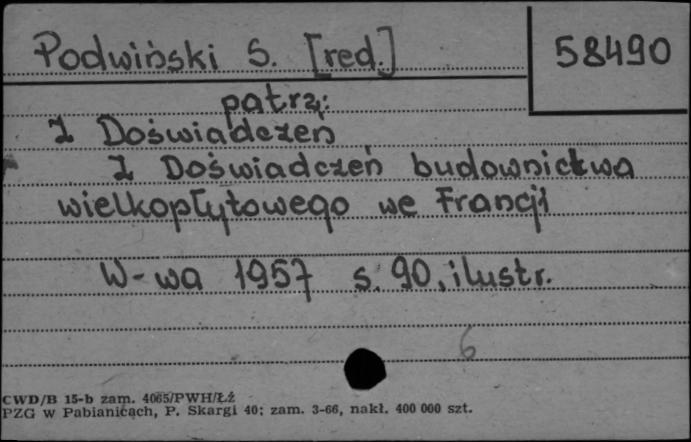 Podwiński S. [red.]
58490
patrz:
Z Doświadczeń
Z Doświadczeń budownictwa
wielkopłytowego we Francji
W-wa 1957 s. 90, ilustr.
6
CWD/B 15-b zam. 4065/PWH/Łż
PZG w Pabianicach, P. Skargi 40; zam. 3-66, nakł. 400 000 szt.